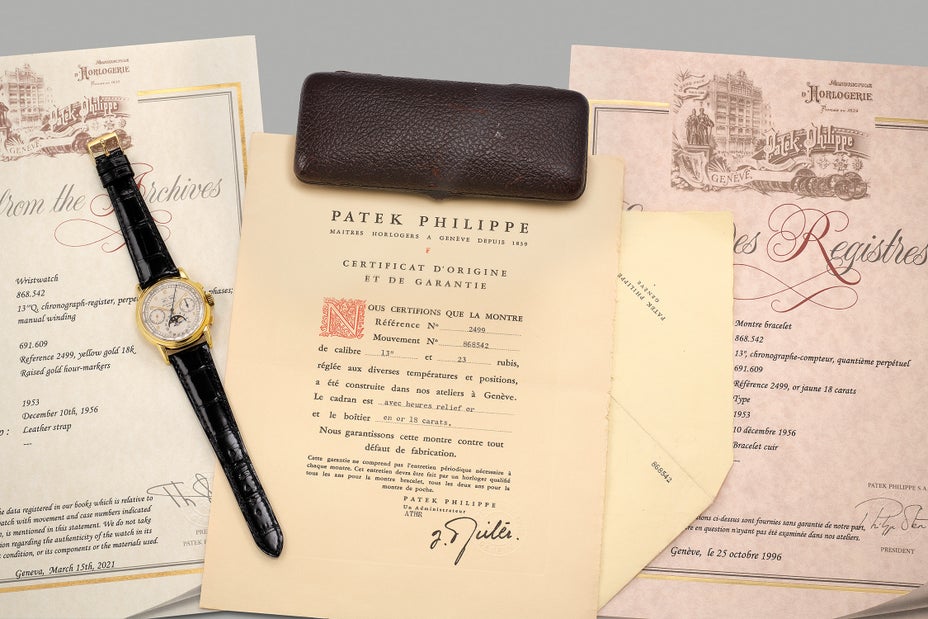 MANUFACTURE
D'HORLOGERIE
FONDÉE EN 1839
Patek Philippe
GENÈVE
from the Archives
Wristwatch
868.542
13'''Q, chronograph-register,
manual winding
691.609
Reference 2499, yellow gold 18k
Raised gold hour-markers
1953
December 10th, 1956
Leather strap
---
the data registered in our books which is relative to
watch with movement and case numbers indicated
is mentioned in this statement. We do not take
regarding the authenticity of the watch in its
condition, or its components or the materials used.
Geneva, March 15th, 2021
PATEK PHILIPPE
MAITRES HORLOGERS A GENÈVE DEPUIS 1839
CERTIFICAT D'ORIGINE
ET DE GARANTIE
NOUS CERTIFIONS QUE LA MONTRE
Référence Nº 2499
Mouvement Nº 868542
de calibre 13''' et 23 rubis,
réglée aux diverses températures et positions,
a été construite dans nos ateliers à Genève.
Le cadran est avec heures relief or
et le boîtier en or 18 carats.
Nous garantissons cette montre contre tout
défaut de fabrication.
Cette garantie ne comprend pas l'entretien périodique nécessaire à
chaque montre. Cet entretien devra être fait par un horloger qualifié
tous les ans pour la montre bracelet, tous les deux ans pour la
montre de poche.
PATEK PHILIPPE
Un Administrateur
ATHR
PATEK PHILIPPE
GENÈVE
868542
MANUFACTURE
D'HORLOGERIE
FONDÉE EN 1839
Patek Philippe
GENÈVE
des Registres
Montre bracelet
868.542
13''', chronographe-compteur, quantième perpétuel
691.609
Référence 2499, or jaune 18 carats
Type
1953
10 décembre 1956
Bracelet cuir
---
PATEK PHILIPPE S.A.
ci-dessus sont fournies sans garantie de notre part,
en question n'ayant pas été examinée dans nos ateliers.
PRESIDENT
Genève, le 25 octobre 1996